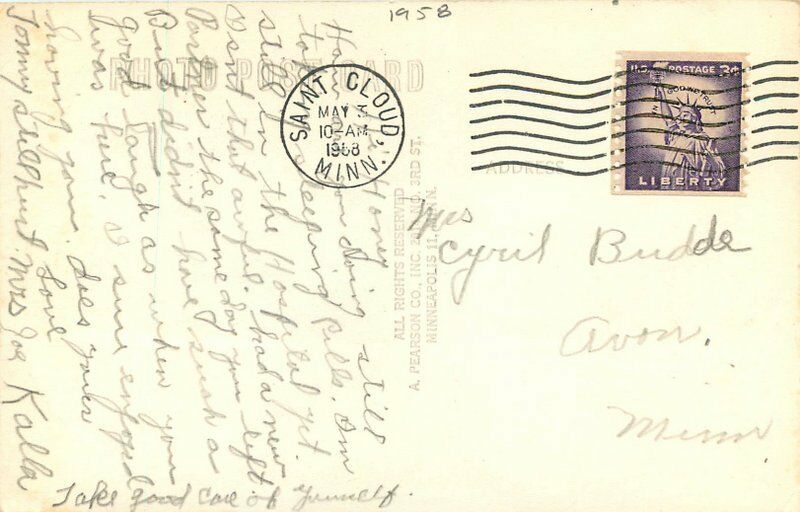 1958
PHOTO POST CARD
Honey
How are you doing still
taking sleeping pills. I'm
still in the Hospital yet.
Isn't that awful. had a new
Partner the same day you left
But didn't have such a
good laugh as when you
was here. I sure enjoyed
having you. does your
Tommy still hurt
Love
Mrs Joe Kalla
Take good care of yourself.
SAINT CLOUD,
MAY 3
10-AM
1958
MINN.
U.S. POSTAGE 3¢
IN GOD WE TRUST
LIBERTY
ADDRESS
ALL RIGHTS RESERVED
A. PEARSON CO., INC. 3RD ST.
MINNEAPOLIS 11,
Mrs
Cyril Budde
Avon,
Minn